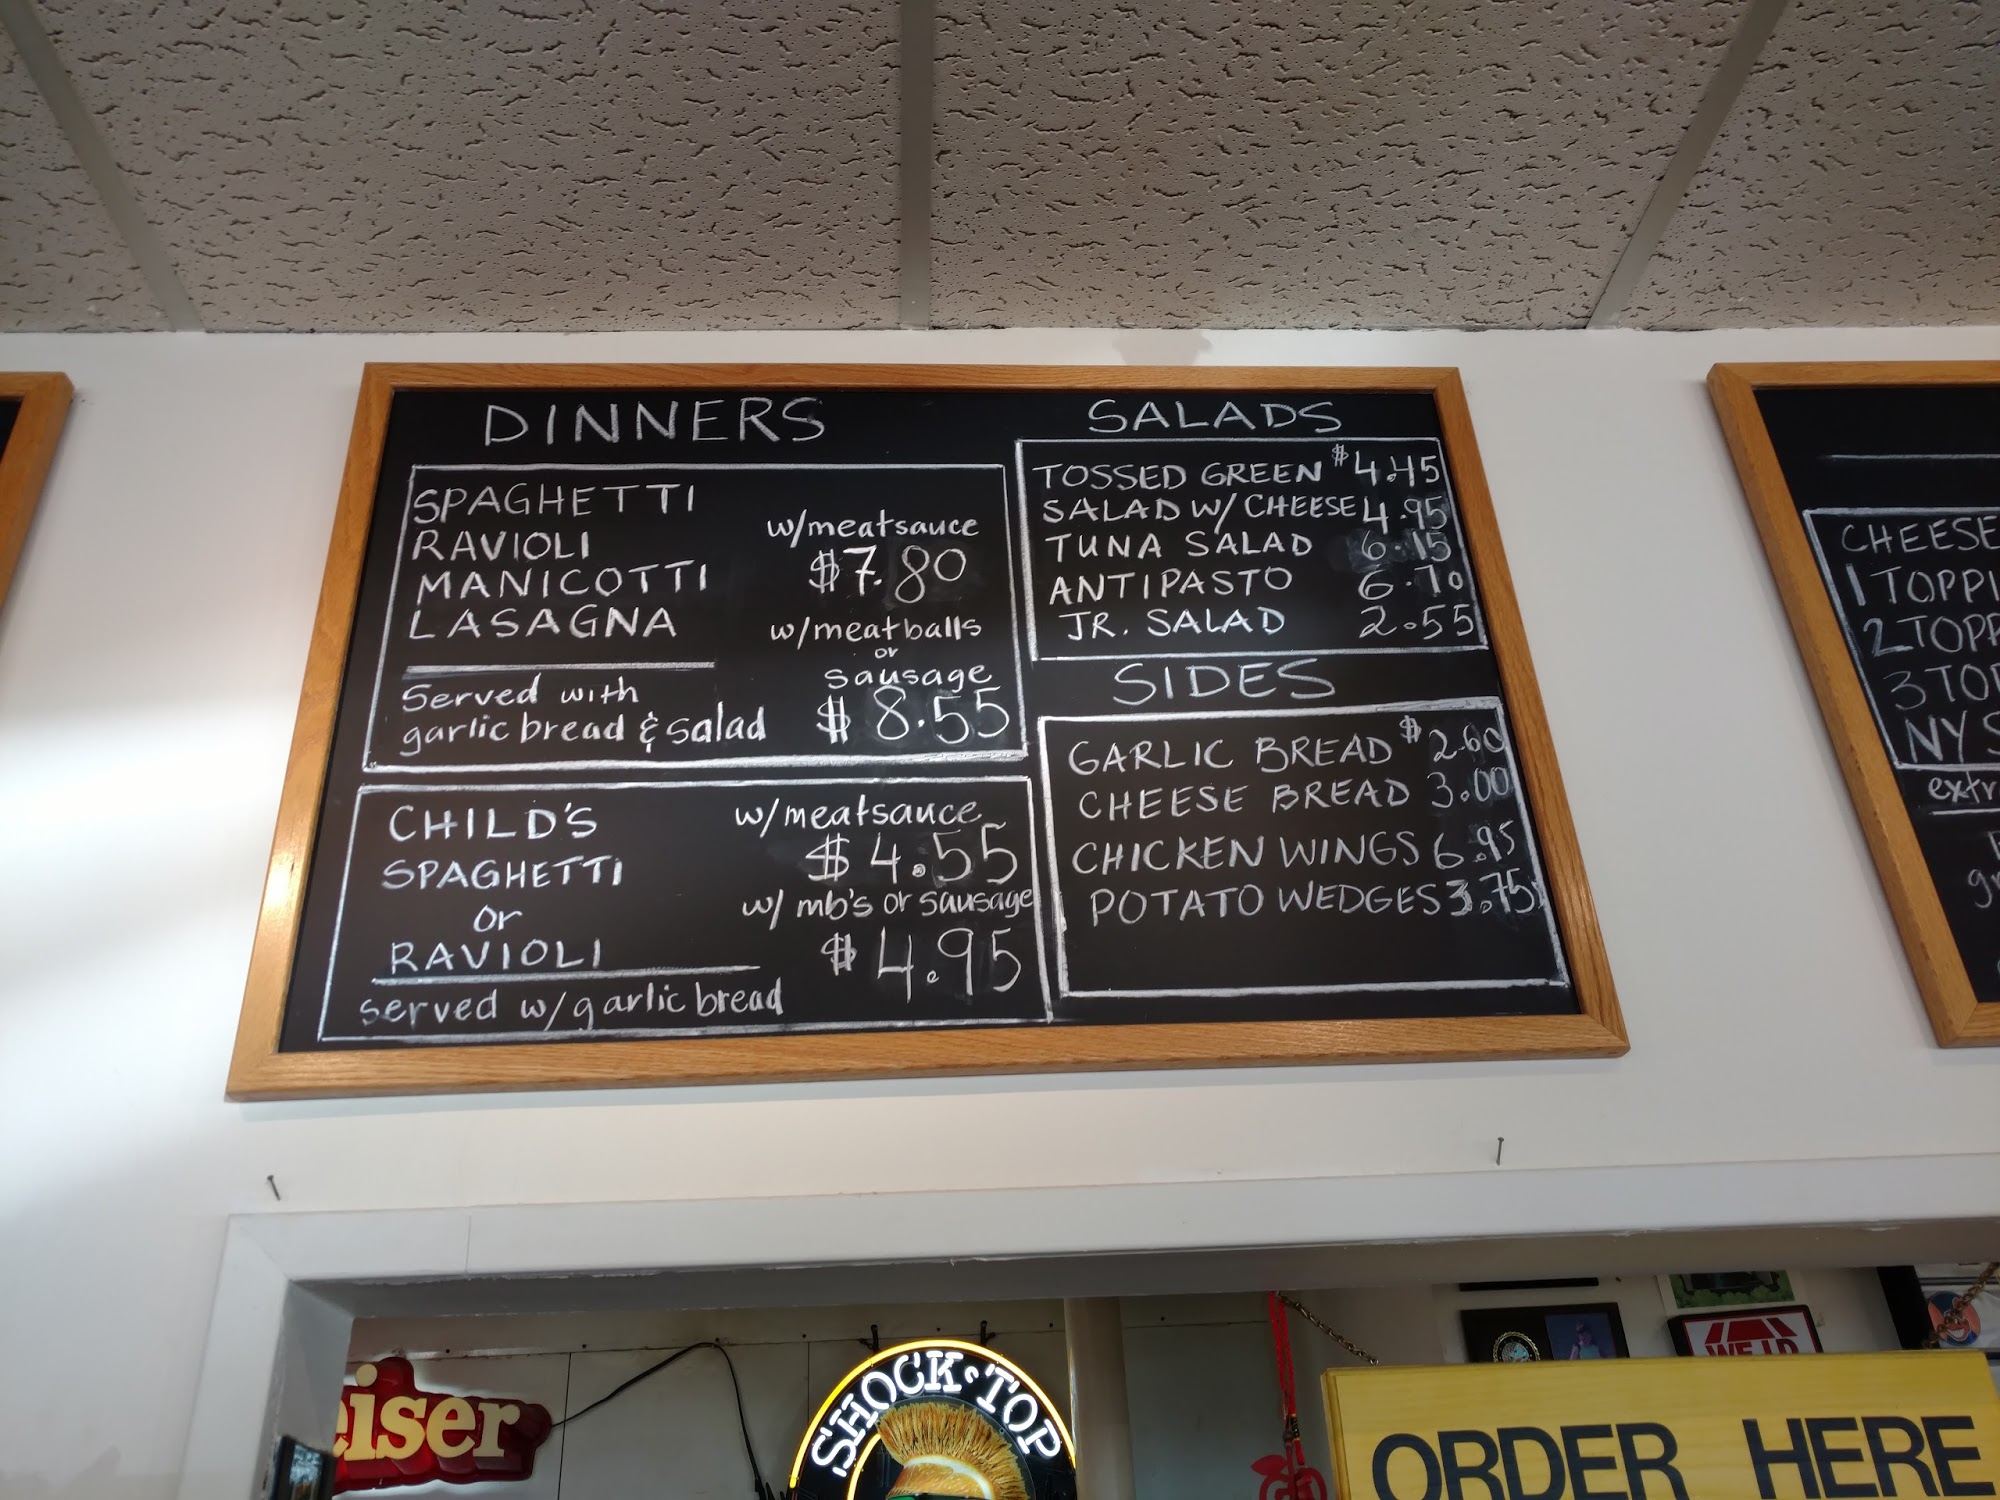 DINNERS
SPAGHETTI
RAVIOLI
MANICOTTI
LASAGNA
w/meatsauce
$7.80
w/meatballs
or
sausage
$8.55
Served with
garlic bread & salad
CHILD'S
SPAGHETTI
or
RAVIOLI
served w/garlic bread
w/meatsauce
$4.55
w/ mb's or sausage
$4.95
SALADS
TOSSED GREEN $4.45
SALAD W/CHEESE 4.95
TUNA SALAD 6.15
ANTIPASTO 6.70
JR. SALAD 2.55
SIDES
GARLIC BREAD $2.60
CHEESE BREAD 3.00
CHICKEN WINGS 6.95
POTATO WEDGES 3.75
CHEESE
1 TOPPI
2 TOPP
3 TO
NY S
extr
eiser
SHOCK TOP
ORDER HERE